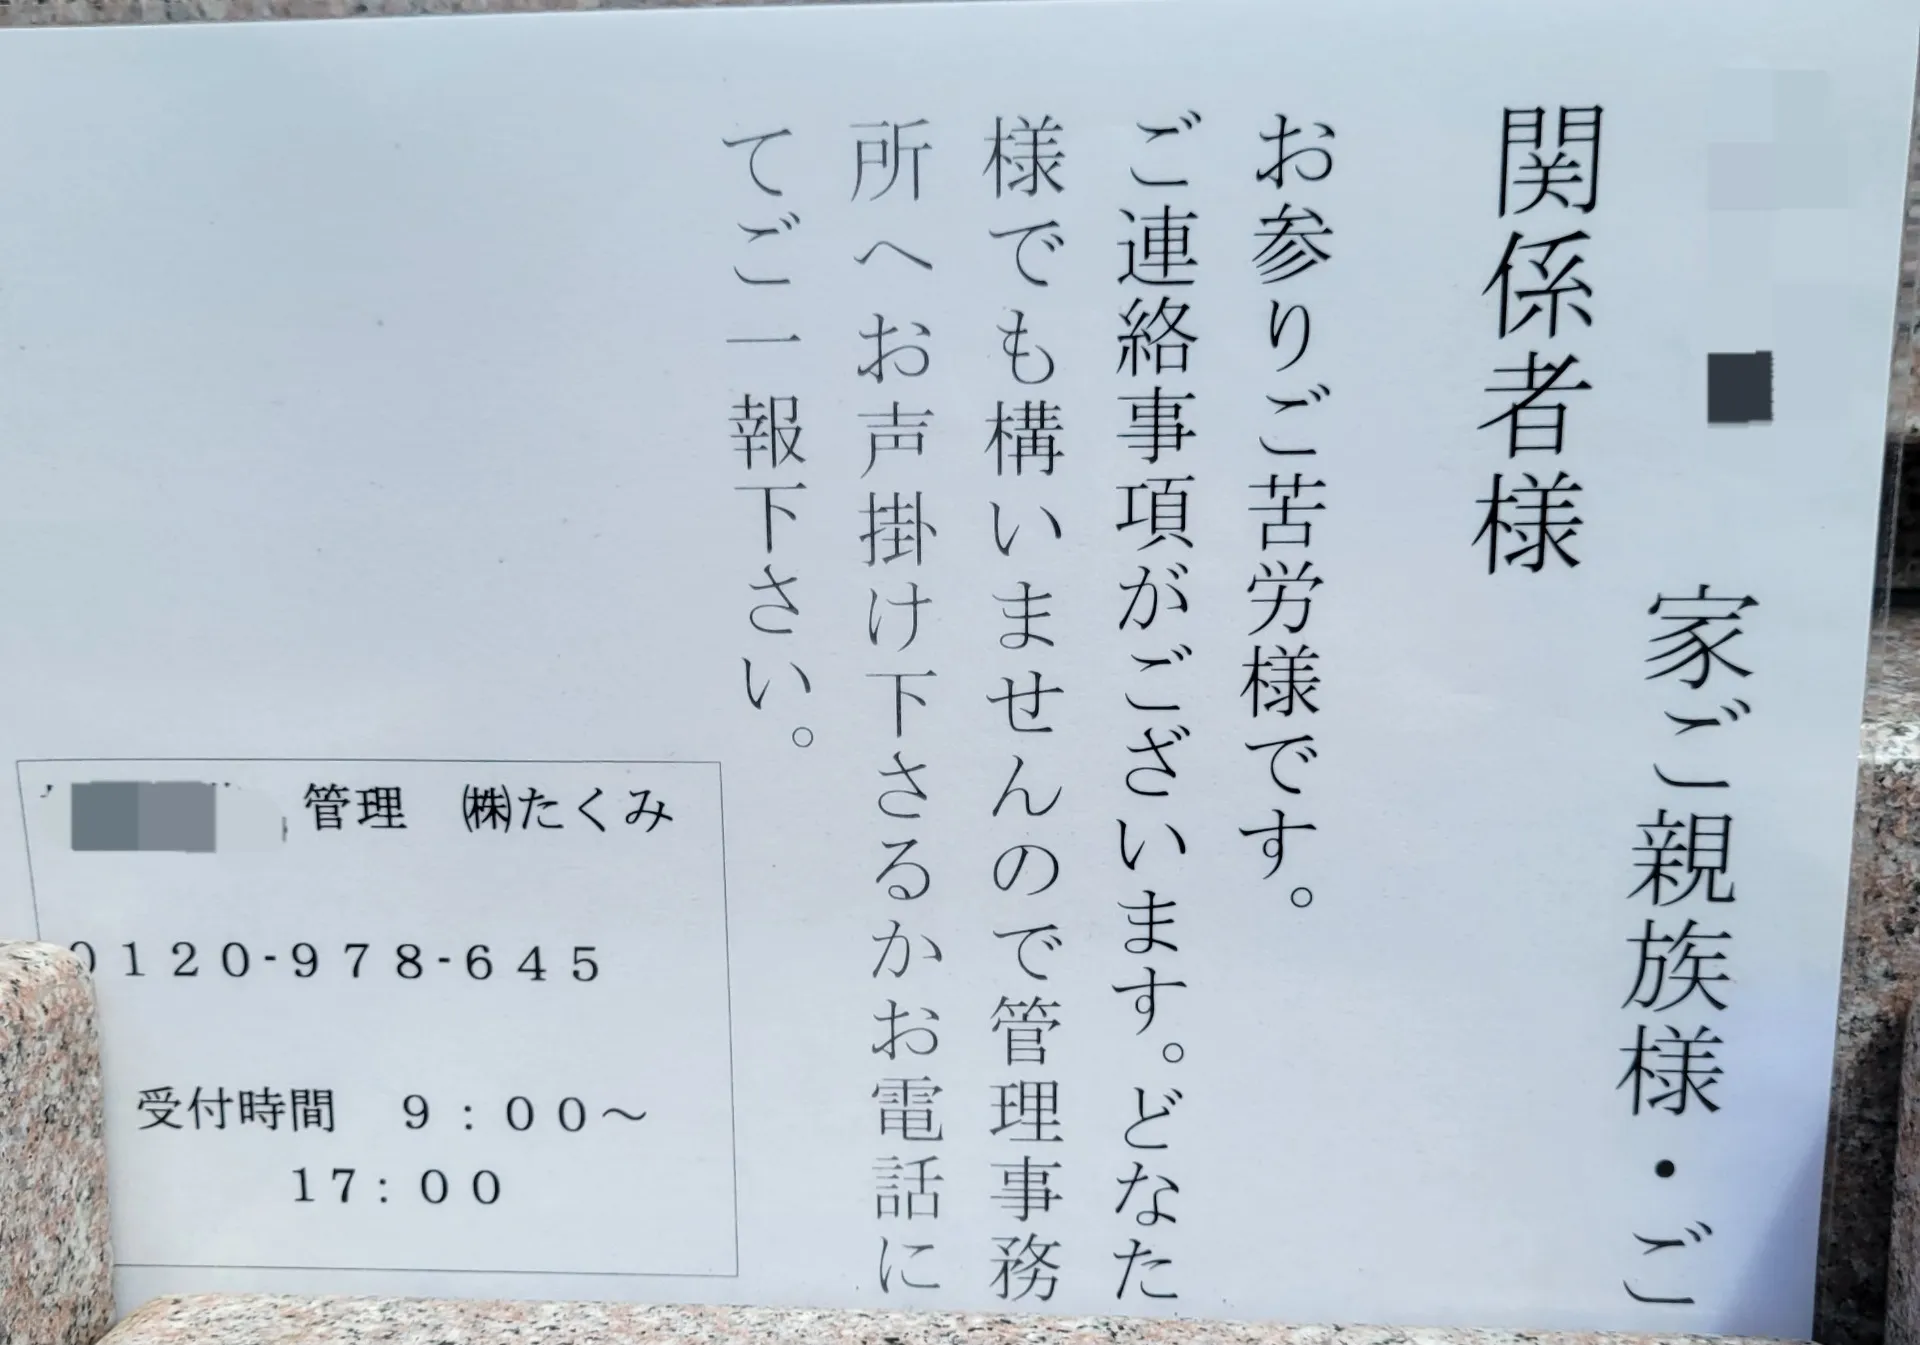 家ご親族様・ご
関係者様
お参りご苦労様です。
ご連絡事項がございます。どなた
様でも構いませんので管理事務
所へお声掛け下さるかお電話に
てご一報下さい。
管理　㈱たくみ
０１２０-９７８-６４５
受付時間　９：００～
１７：００